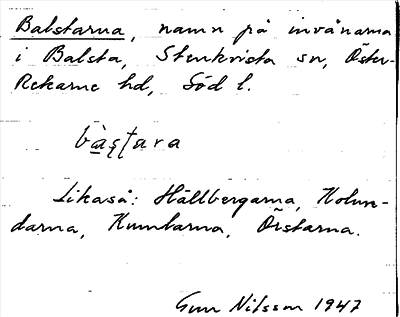 Balstarna, namn på invånarna
i Balsta, Stenkvista sn, Öster-
Rekarne hd, Söd l.
bàșțara
Likaså: Hällbergarna, Holun-
darna, Kumlarna, Örstarna.
Gun Nilsson 1947